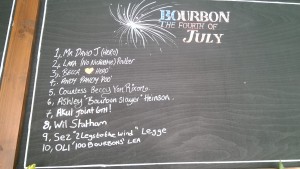 BOURBON
THE FOURTH OF
JULY
1, MR DAVID J (HERO)
2, LARA (No Nickname) Rutter
3, BECCA 'HOBO'
4, ANDY PANDY POO
5, Countess Beccy Von
6, Ashley "Bourbon Slayer" Heinson.
7, Akul joint 6th!
8, Wil Statham
9, Sez "2 Legs to the Wind" Legge
10, OLI '100 BOURBONS' LEA